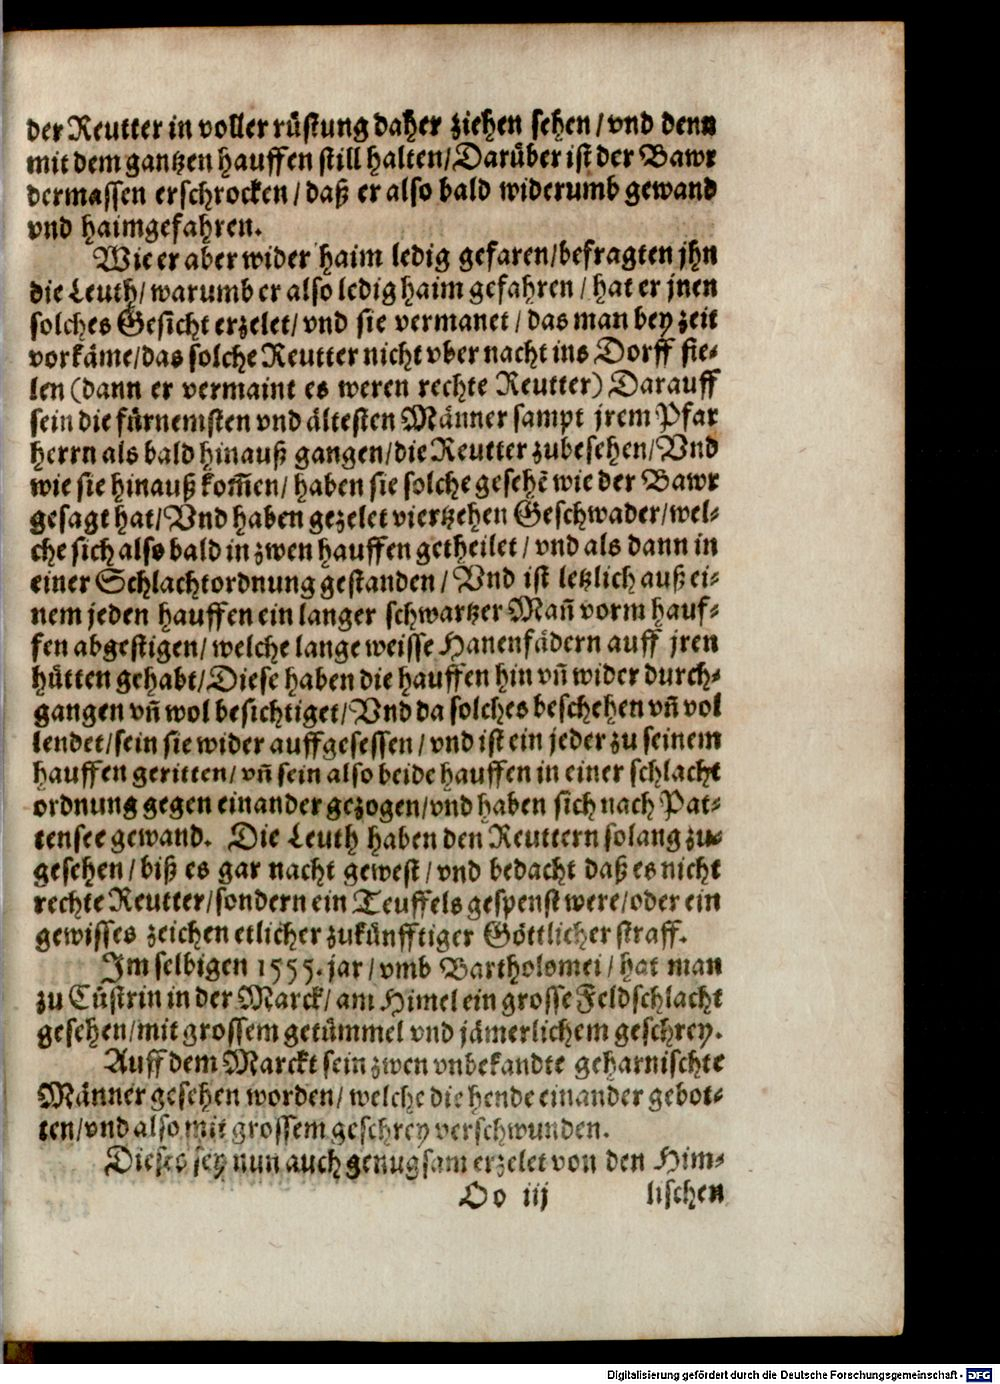 der Reutter in voller rüstung daher ziehen sehen / vnd denn
mit dem gantzen hauffen still halten / Darüber ist der Bawr
dermassen erschrocken / daß er also bald widerumb gewand
vnd haimgefahren.
Wie er aber wider haim ledig gefaren / befragten jhn
die Leuth / warumb er also ledig haim gefahren / hat er jnen
solches Gesicht erzelet / vnd sie vermanet / das man bey zeit
vorkäme / das solche Reutter nicht vber nacht ins Dorff fie-
len (dann er vermaint es weren rechte Reutter) Darauff
sein die fürnemsten vnd ältesten Männer sampt jrem Pfar
herrn als bald hinauß gangen / die Reutter zubesehen / Vnd
wie sie hinauß kom̃en / haben sie solche gesehẽ wie der Bawr
gesagt hat / Vnd haben gezelet viertzehen Geschwader / wel-
che sich also bald in zwen hauffen getheilet / vnd als dann in
einer Schlachtordnung gestanden / Vnd ist letzlich auß ei-
nem jeden hauffen ein langer schwartzer Mañ vorm hauf-
fen abgestigen / welche lange weisse Hanenfädern auff jren
hütten gehabt / Diese haben die hauffen hin vñ wider durch-
gangen vñ wol besichtiget / Vnd da solches beschehen vñ vol
lendet / sein sie wider auffgesessen / vnd ist ein jeder zu seinem
hauffen geritten / vñ sein also beide hauffen in einer schlacht
ordnung gegen einander gezogen / vnd haben sich nach Pat-
tensee gewand. Die Leuth haben den Reuttern solang zu-
gesehen / biß es gar nacht gewest / vnd bedacht daß es nicht
rechte Reutter / sondern ein Teuffels gespenst were / oder ein
gewisses zeichen etlicher zukünfftiger Göttlicher straff.
Im selbigen 1555. jar / vmb Bartholomei / hat man
zu Cüstrin in der Marck / am Himel ein grosse Feldschlacht
gesehen / mit grossem getümmel vnd jämerlichem geschrey.
Auff dem Marckt sein zwen vnbekandte geharnischte
Männer gesehen worden / welche die hende einander gebot-
ten / vnd also mit grossem geschrey verschwunden.
Dieses sey nun auch genugsam erzelet von den Him-
Oo iij lischen
Digitalisierung gefördert durch die Deutsche Forschungsgemeinschaft - DFG